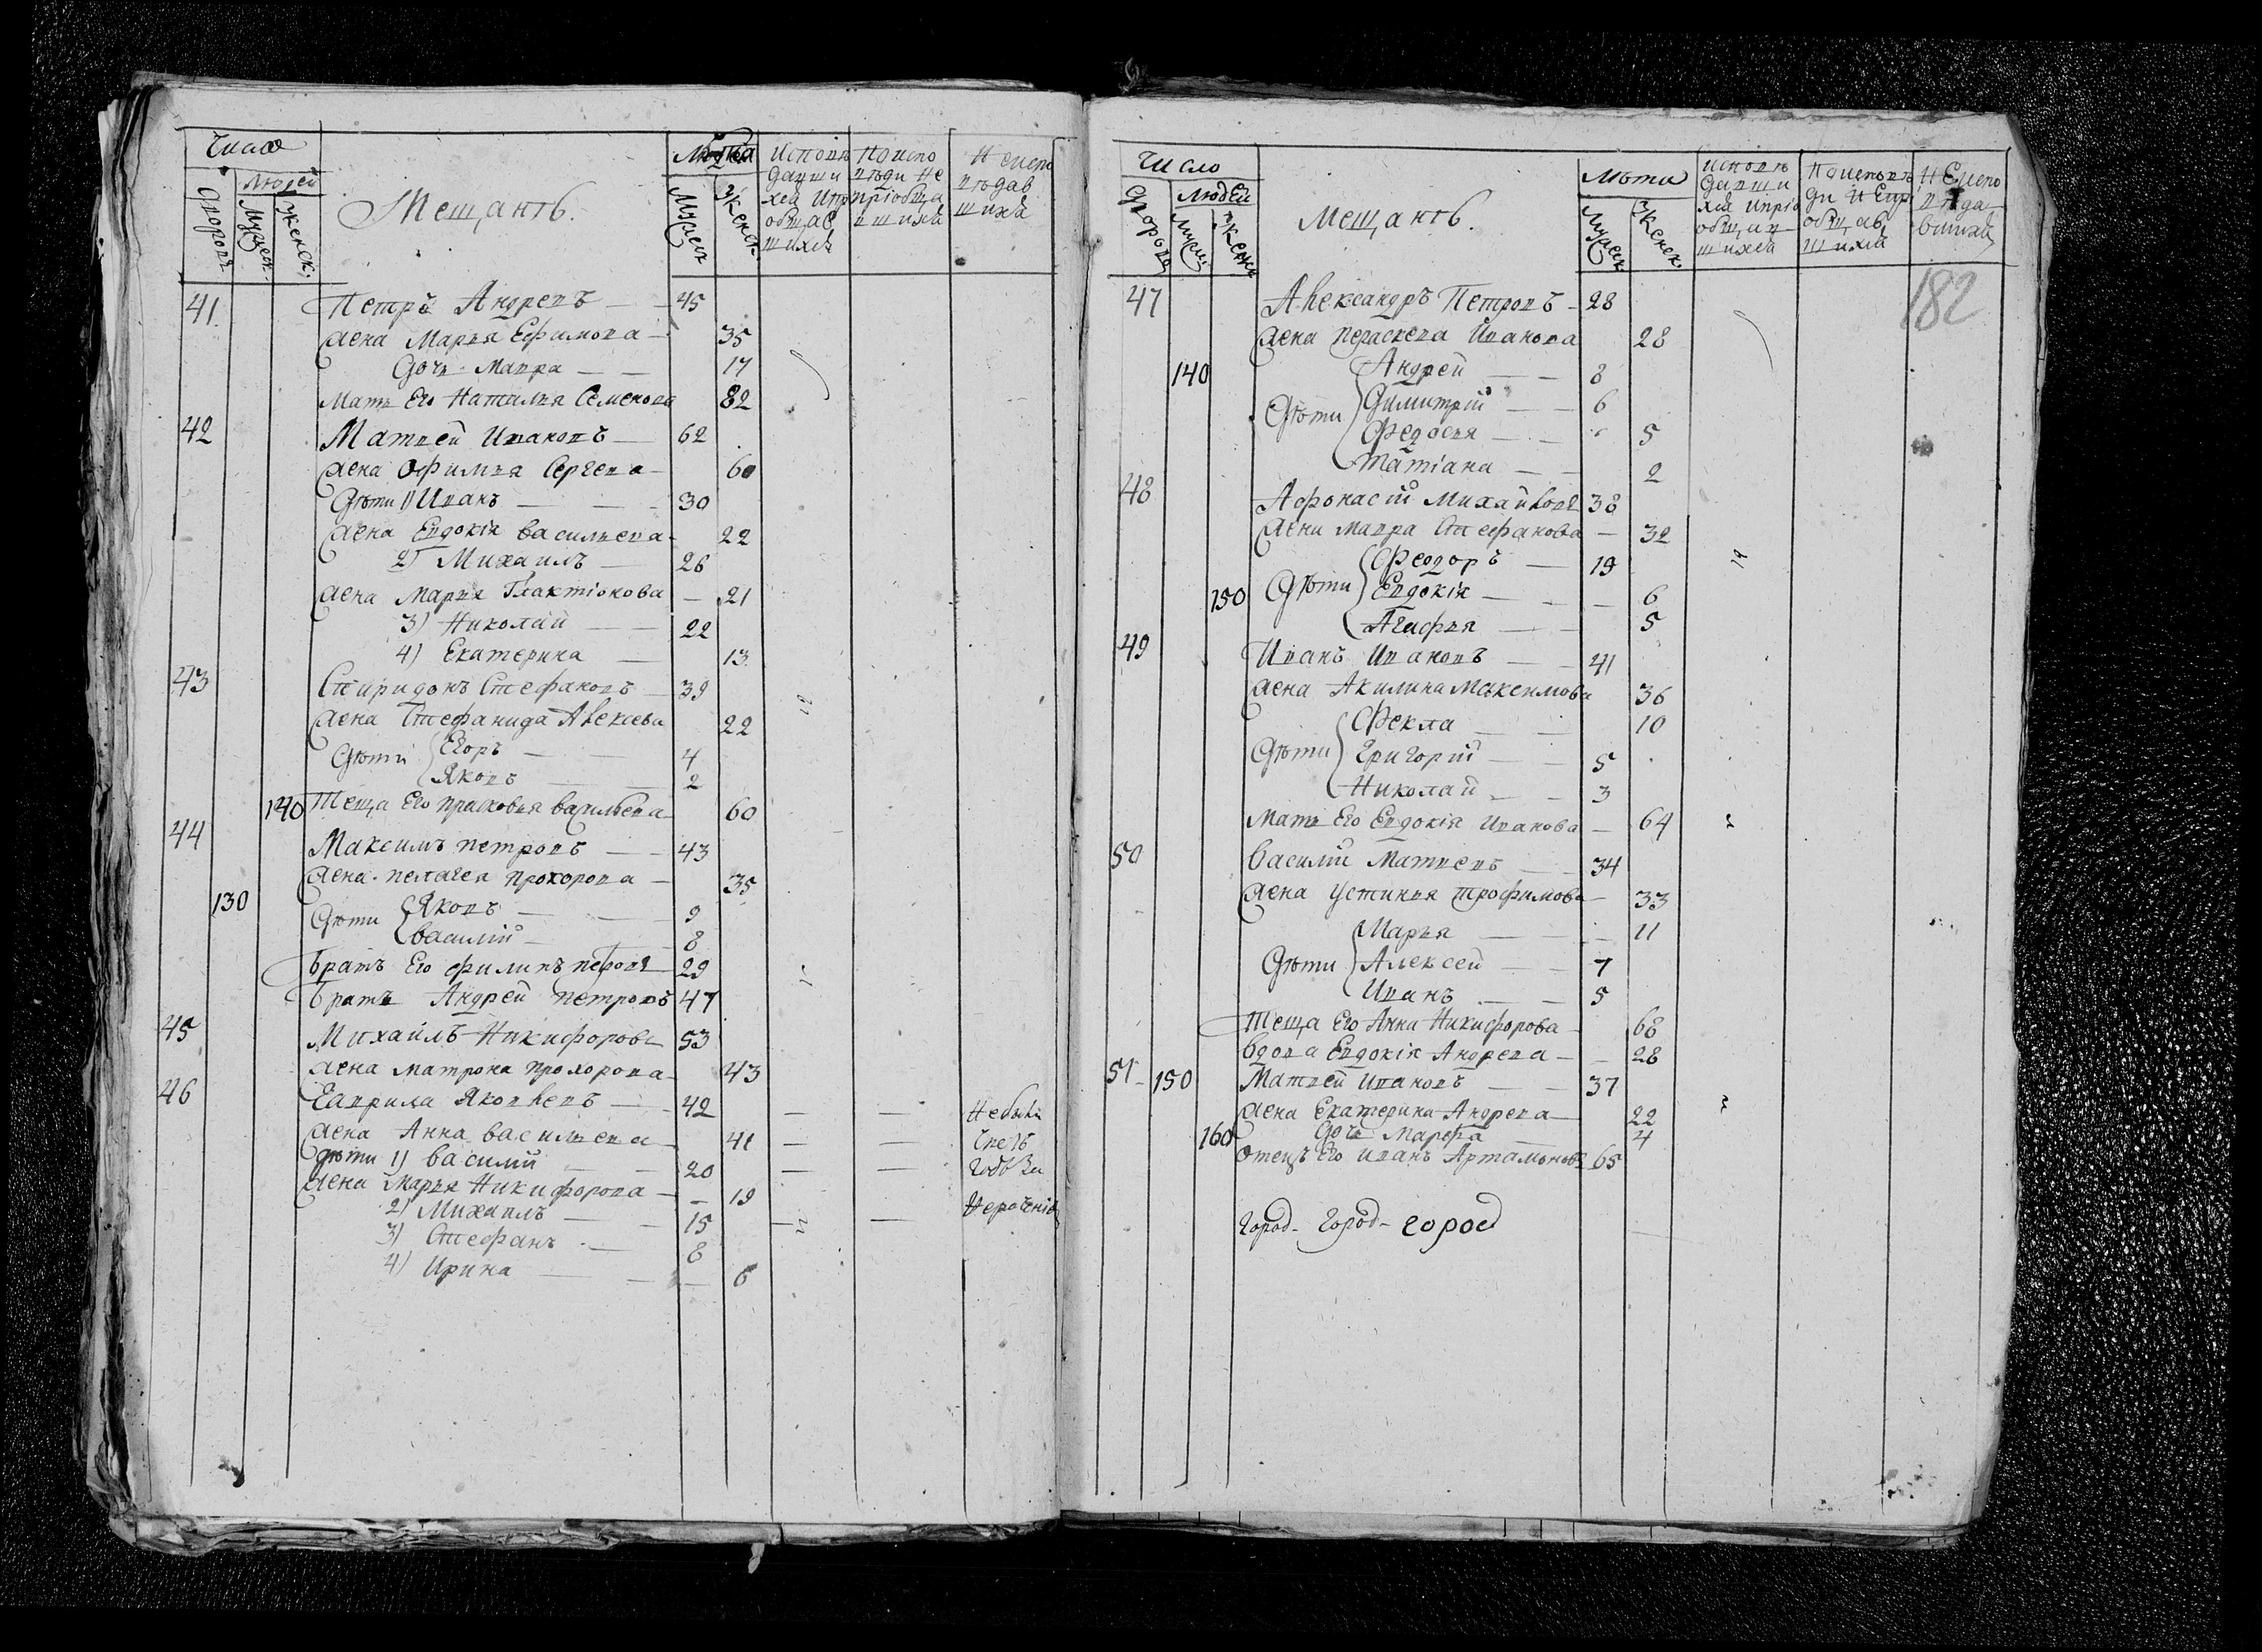 Число
Людей
Дворовъ
Мужеск.
Женск.
Мещанъ.
Лѣта
Мужеск
Женск.
Исповѣ
давши
хся и пр
общав
шихся
По испо
вѣди не
пріобща
вшихся
Неиспо
вѣдав
шихся
41. Петръ Андреевъ — 45
жена Марья Ефимова — 35
Дочь Мавра — — 17
Мать Его Наталья Семенова 82
42 Матвей Ивановъ — 62
жена Офимья Сергева — 60
Дѣти 1) Иванъ — — 30
жена Евдокія Васильева — 22
2) Михаилъ — 26
жена Марья Галактіонова — 21
3) Николай — — 22
4) Екатерина — 13
43 Спиридонъ Стефановъ — 39
жена Стефанида Алексеева 22
Дѣти Егоръ — — 4
Яковъ — — 2
140 Теща Его Прасковья Васильева 60
44 Максимъ Петровъ — — 43
жена Пелагея Прохорова — 35
130 Дѣти Яковъ — — 9
Василій — — 8
Братъ Его Филипъ Петровъ 29
Братъ Андрей Петровъ 47
45 Михайлъ Никифоровъ 53
жена Матрона Прохорова — 43
46 Гаврила Яковлевъ — 42 — — Небыли
жена Анна Васильева — 41 — — Чрезъ
дѣти 1) Василий — — 20 — —
жена Марья Никифорова — — 19
2) Михаилъ — — 15 — — Нерачение
3) Стефанъ — 8
4) Ирина — — — 6
Число
Людей
Дворовъ
Мужес
Женск
Мещанъ.
Лѣта
Мужеск
Женск.
Исповѣ
давши
хся и пріо
общав
шихся
По исповѣ
ди не пр
общав
шихся
Неиспо
вѣда
вшихся
182
47 Александръ Петровъ — 28
жена Пераскева Иванова 28
140 Андрей — — 8
Дѣти Димитрій — — 6
Федосья — — 5
Татіана — — 2
48 Афонасій Михайловъ 38
жена Мавра Стефанова — 32
Феодоръ — 19
150 Дѣти Евдокія — — — 6
Агафья — — 5
49 Иванъ Ивановъ — — 41
жена Акилина Максимова 36
Фекла — — 10
Дѣти Григорій — — 5
Николай — — 3
Мать Его Евдокія Иванова — 64
50 Василий Матвеевъ — — 34
жена Устинья Трофимова — 33
Марья — — — 11
Дѣти Алексей — — 7
Иванъ — — 5
Теща Его Анна Никифорова — 68
Вдова Евдокія Андрева — — 28
51 150 Матвей Ивановъ — — 37
жена Екатерина Андрева — 22
160 Дочь Марфа — 4
Отецъ Его Иванъ Артамоновъ 65
Город- Город- город